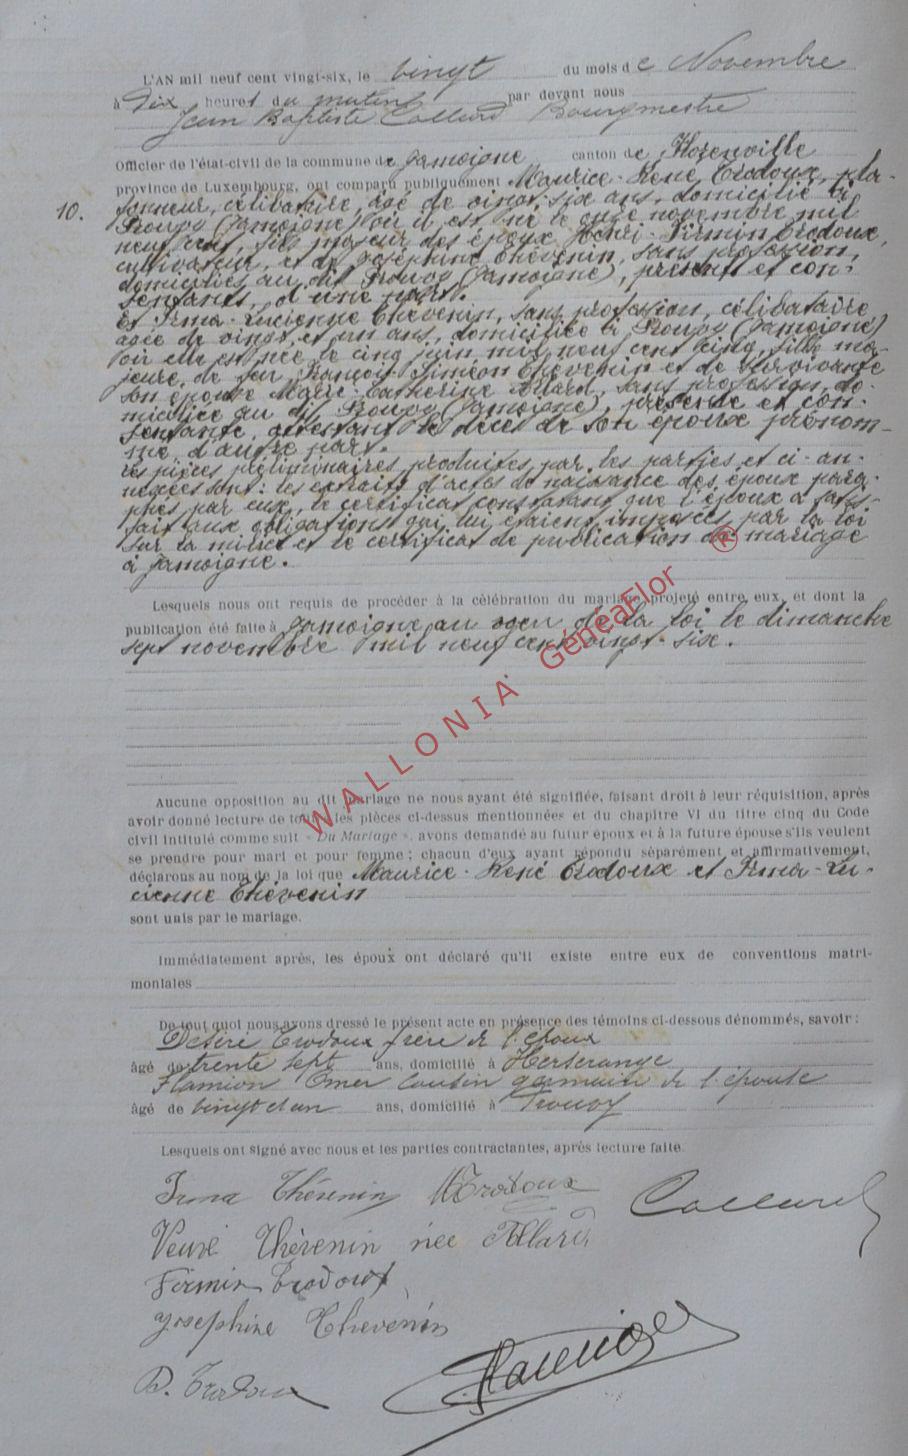 L'AN mil neuf cent vingt-six, le vingt du mois de Novembre
à Dix heures du matin par devant nous
Jean Baptiste Collard Bourgmestre
Officier de l'état-civil de la commune de Jamoigne canton de Florenville
province de Luxembourg, ont comparu publiquement Maurice-René Trodoux, pla-
10. fonneur, célibataire, âgé de vingt-six ans, domicilié à
Prouvy (Jamoigne) où il est né le onze novembre mil
neuf cent, fils majeur des époux Henri-Firmin Trodoux,
cultivateur, et de Joséphine Thévenin, sans profession,
domiciliés au dit Prouvy (Jamoigne), présents et con-
sentants, d'une part.
Et Irma-Lucienne Thévenin, sans profession, célibataire
âgée de vingt et un ans, domiciliée à Prouvy (Jamoigne)
où elle est née le cinq juin mil neuf cent cinq, fille ma-
jeure de feu François Siméon Thévenin et de survivante
son épouse Marie-Catherine Allard, sans profession, do-
miciliée au dit Prouvy (Jamoigne), présente et con-
sentante, attestant le décès de son époux prénom-
mé, d'autre part.
Les pièces préliminaires produites par les parties et ci-an-
nexées sont: les extraits d'actes de naissance des époux para-
phés par eux, le certificat constatant que l'époux a satis-
fait aux obligations qui lui étaient imposées par la loi
sur la milice et le certificat de publication de mariage
à Jamoigne.
Lesquels nous ont requis de procéder à la célébration du mariage projeté entre eux, et dont la
publication été faite à Jamoigne au vœu de la loi le dimanche
sept novembre mil neuf cent vingt-six.
Aucune opposition au dit mariage ne nous ayant été signifiée, faisant droit à leur réquisition, après
avoir donné lecture de toutes les pièces ci-dessus mentionnées et du chapitre VI du titre cinq du Code
civil intitulé comme suit « Du Mariage », avons demandé au futur époux et à la future épouse s'ils veulent
se prendre pour mari et pour femme ; chacun d'eux ayant répondu séparément et affirmativement,
déclarons au nom de la loi que Maurice-René Trodoux et Irma-Lu-
cienne Thévenin
sont unis par le mariage.
Immédiatement après, les époux ont déclaré qu'il existe entre eux de conventions matri-
moniales
De tout quoi nous avons dressé le présent acte en présence des témoins ci-dessous dénommés, savoir :
Désiré Trodoux frère de l'époux
âgé de trente sept ans, domicilié à Herserange
Flamion Omer Cousin germain de l'épouse
âgé de vingt et un ans, domicilié à Prouvy
Lesquels ont signé avec nous et les parties contractantes, après lecture faite.
Irma Thévenin MTrodoux Collard
Veuve Thèvenin née Allard
Firmin Trodoux
Josephine Thevenin
D. Trodoux
WALLONIA GénéaFlor ®